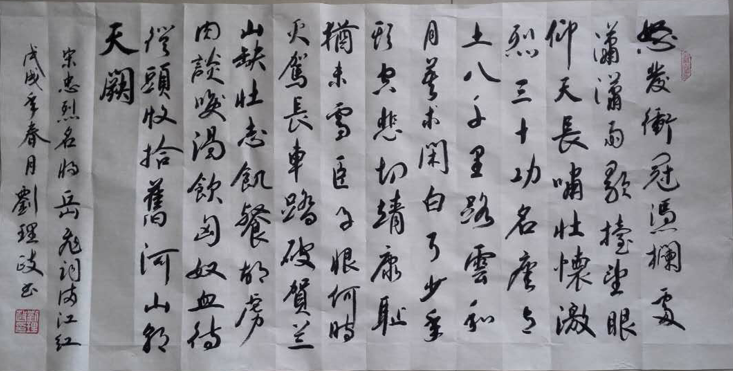 怒發衝冠憑欄處
瀟瀟雨歇擡望眼
仰天長嘯壯懷激
烈三十功名塵与
土八千里路雲和
月莫等閑白了少年
頭空悲切靖康耻
猶未雪臣子恨何時
灭駕長車踏破賀兰
山缺壯志飢餐胡虜
肉談笑渴飲匈奴血待
從頭收拾舊河山朝
天闕
宋忠烈名將岳飛詞滿江紅
戊戌年春月劉理政书